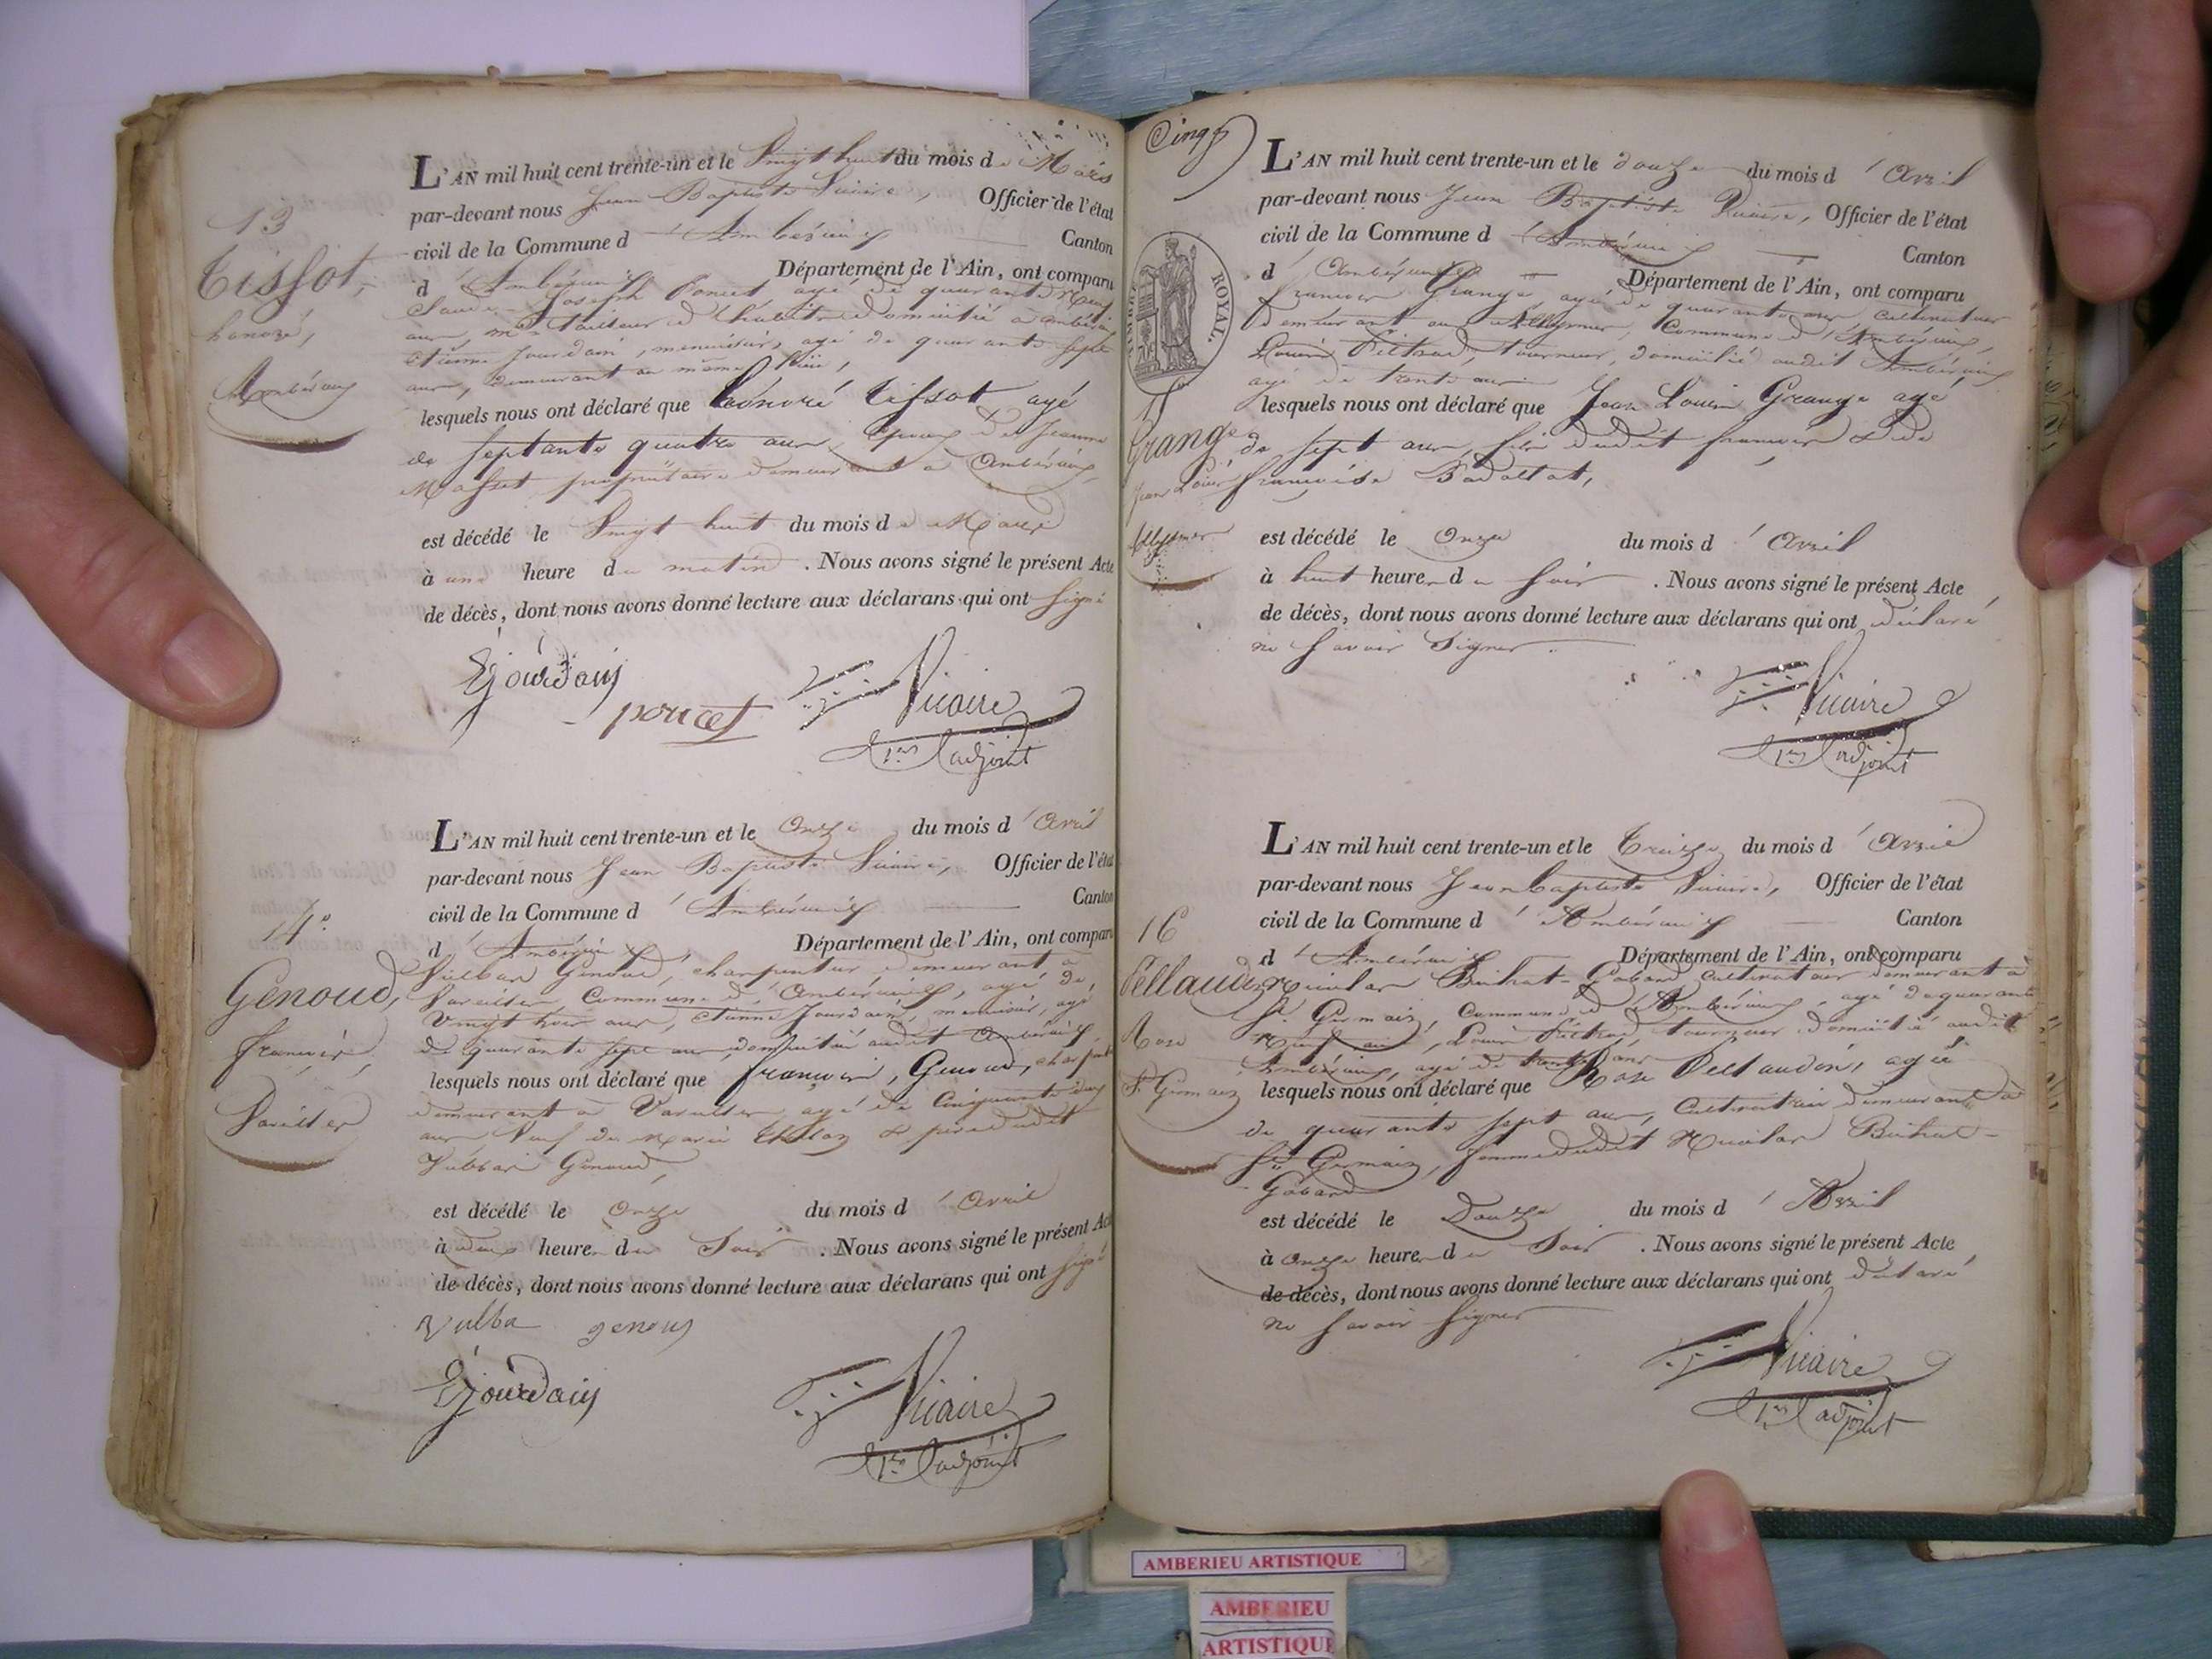 13
Tissot,
honoré,
Ambérieux
L'AN mil huit cent trente-un et le Vingt huit du mois de Mars
par-devant nous Jean Baptiste Vicaire, Officier de l'état
civil de la Commune d'Ambérieux Canton
d'Ambérieux Département de l'Ain, ont comparu
Joseph Poncet, agé de quarante neuf
ans, md tailleur d'habits domicilié à Ambérieux
étienne Jourdain, menuisier, agé de quarante sept
ans, demeurant au même lieu,
lesquels nous ont déclaré que honoré Tissot agé
de septante quatre ans, époux de Jeanne
Masset propriétaire demeurant à Ambérieux,
est décédé le Vingt huit du mois de Mars
à une heure du matin. Nous avons signé le présent Acte
de décès, dont nous avons donné lecture aux déclarans qui ont signé
EJourdain
poncet
Vicaire
1er adjoint
14°
Genoud,
françois,
Vareilles
L'AN mil huit cent trente-un et le Onze du mois d'Avril
par-devant nous Jean Baptiste Vicaire, Officier de l'état
civil de la Commune d'Ambérieux Canton
d'Ambérieux, Département de l'Ain, ont comparu
Genoud, charpentier, demeurant à
Vareilles, Commune d'Ambérieux, agé de
Vingt trois ans, étienne Jourdain, menuisier, agé
de quarante sept ans, domicilié audit Ambérieux
lesquels nous ont déclaré que françois, Genoud,
demeurant à Vareilles, agé de Cinquante deux
ans Veuf de Marie & père dudit
Genoud,
est décédé le Onze du mois d'Avril
à deux heures du Soir. Nous avons signé le présent Acte
de décès, dont nous avons donné lecture aux déclarans qui ont signé
Vulba genoud
EJourdain
Vicaire
1er adjoint
Cinq
TIMBRE ROYAL.
15
Grange
Jean Louis
L'AN mil huit cent trente-un et le douze du mois d'Avril
par-devant nous Jean Baptiste Vicaire, Officier de l'état
civil de la Commune d'Ambérieux Canton
d'Ambérieux Département de l'Ain, ont comparu
françois Grange, agé de quarante ans, cultivateur
demeurant aux Allymes, Commune d'Ambérieux,
Louis Peltrad, tourneur, domicilié audit Ambérieux
agé de trente ans
lesquels nous ont déclaré que Jean Louis Grange agé
de sept ans, fils dudit françois & de
françoise Badoltat,
Allymes
est décédé le Onze du mois d'Avril
à huit heures du soir. Nous avons signé le présent Acte
de décès, dont nous avons donné lecture aux déclarans qui ont déclaré
ne savoir signer.
Vicaire
1er adjoint
16
Pellaudon
Rose
St Germain
L'AN mil huit cent trente-un et le Treize du mois d'Avril
par-devant nous Jean baptiste Vicaire, Officier de l'état
civil de la Commune d'Ambérieux Canton
d'Ambérieux Département de l'Ain, ont comparu
Nicolas Gobard cultivateur demeurant à
St Germain, Commune d'Ambérieux, agé de quarante
neuf ans, Louis Peltrad, tourneur domicilié audit
Ambérieux, agé de trente ans
lesquels nous ont déclaré que Rose Pellaudon, agée
de quarante sept ans, Cultivatrice demeurant à
St Germain, femme dudit Nicolas
Gobard
est décédé le Douze du mois d'Avril
à onze heures du Soir. Nous avons signé le présent Acte
de décès, dont nous avons donné lecture aux déclarans qui ont déclaré
ne savoir signer
Vicaire
1er adjoint
AMBERIEU ARTISTIQUE
AMBERIEU
ARTISTIQUE